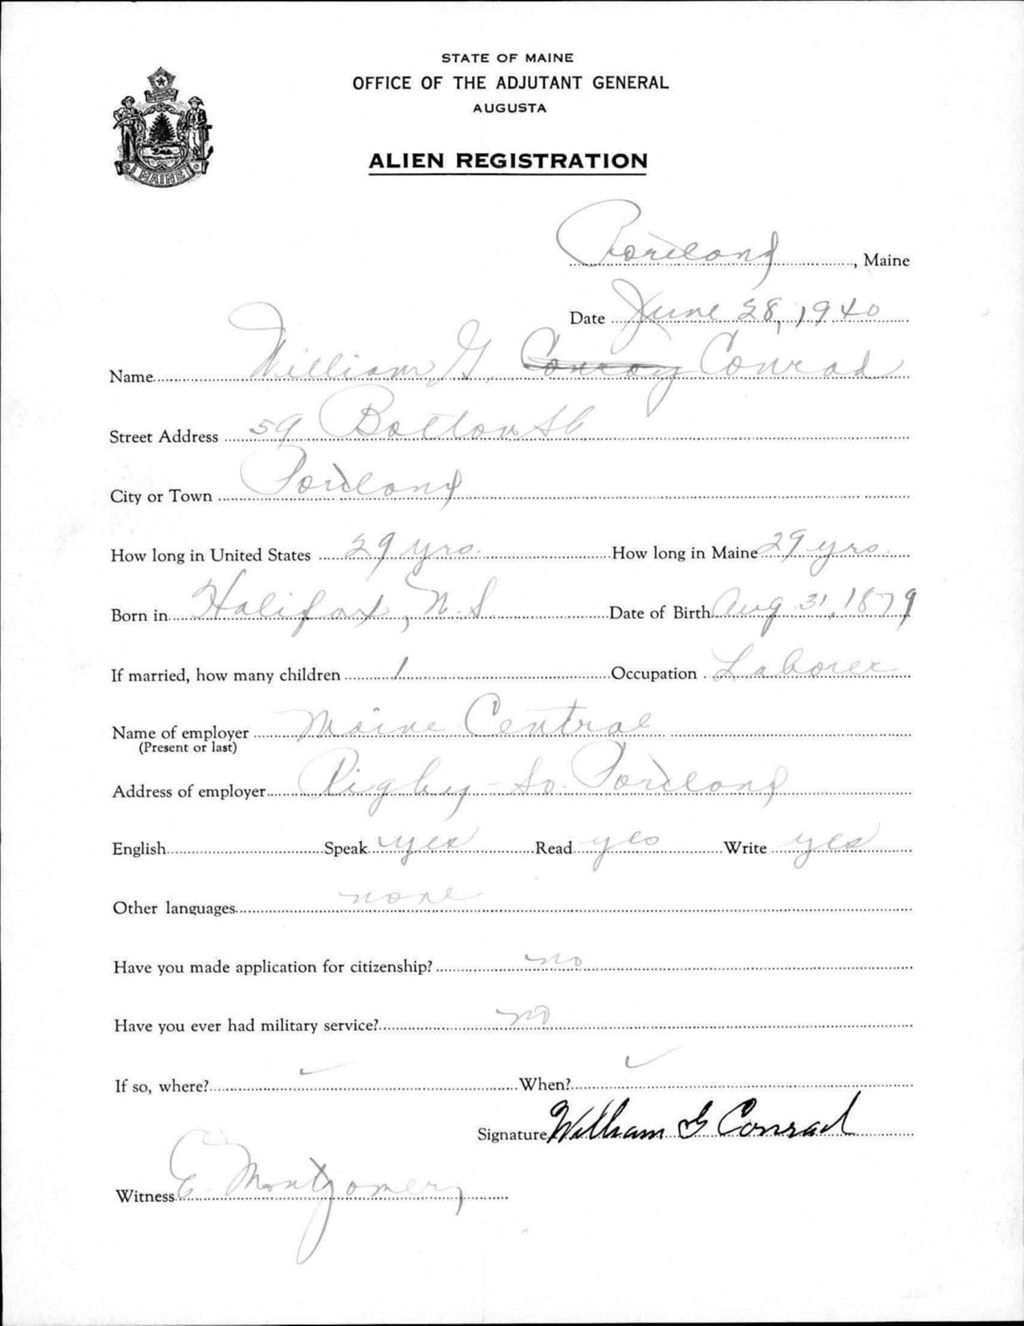 STATE OF MAINE
OFFICE OF THE ADJUTANT GENERAL
AUGUSTA
MAINE
ALIEN REGISTRATION
Portland, Maine
Date June 28, 1940
Name William G. Conroy Conrad
Street Address 59 Bolton St
City or Town Portland
How long in United States 29 yrs. How long in Maine 29 yrs
Born in Halifax, N.S Date of Birth Aug 31, 1879
If married, how many children 1 Occupation Laborer
Name of employer Maine Central
(Present or last)
Address of employer Rigby - So. Portland
English Speak yes Read yes Write yes
Other languages none
Have you made application for citizenship? no
Have you ever had military service? no
If so, where? When?
Signature William G Conrad
Witness E. Montgomery